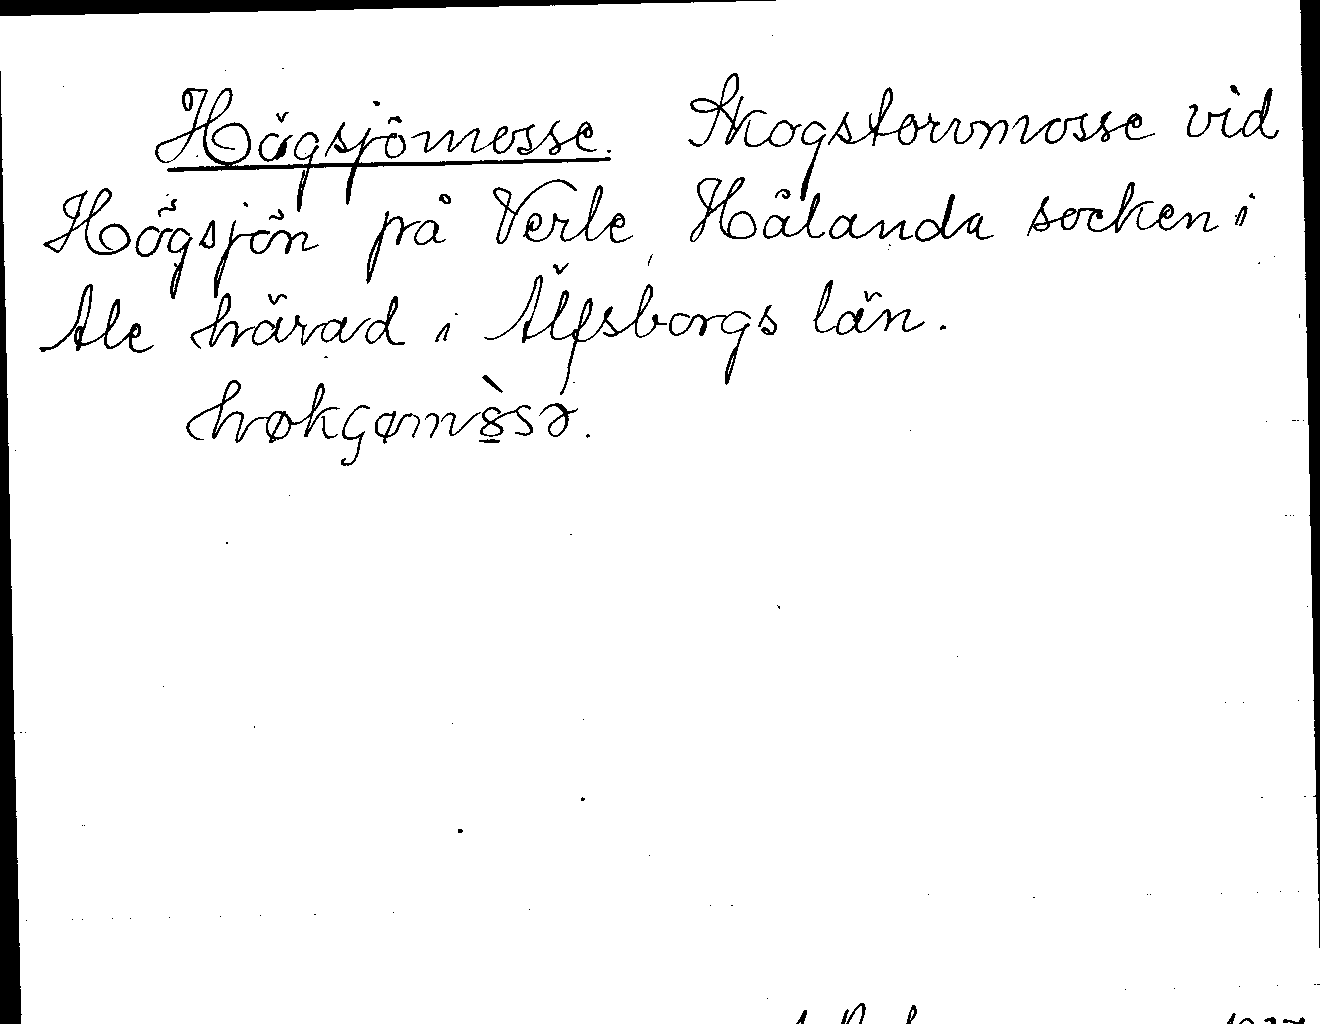 Högsjömosse. Skogstorvmosse vid
Högsjön på Verle, Hålanda socken i
Ale härad i Älfsborgs län.
høkçømòsə.